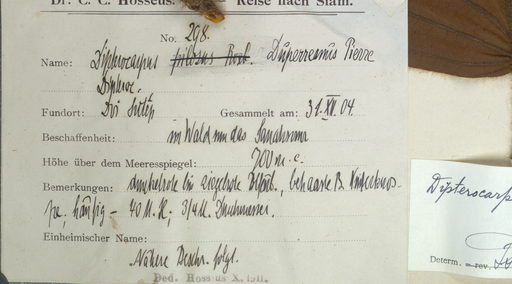 Dr. C. C. Hosseus. Reise nach Siam.
No. 298.
Name: Dipterocarpus pilosus Roxb. Duperreanus Pierre
Dipteroc.
Fundort: Doi Sutep Gesammelt am: 31. XII. 04.
Beschaffenheit: im Wald um das Sanatorium
Höhe über dem Meeresspiegel: 700 m. c.
Bemerkungen: dunkelrote bis ziegelrote behaarte B.
häufig – 40 M. H.; 3/4 M. Durchmesser.
Einheimischer Name:
Nähere Beschr. folgt.
Ded. Hosseus X. 1911.
Dipterocarp
Determ. rev.